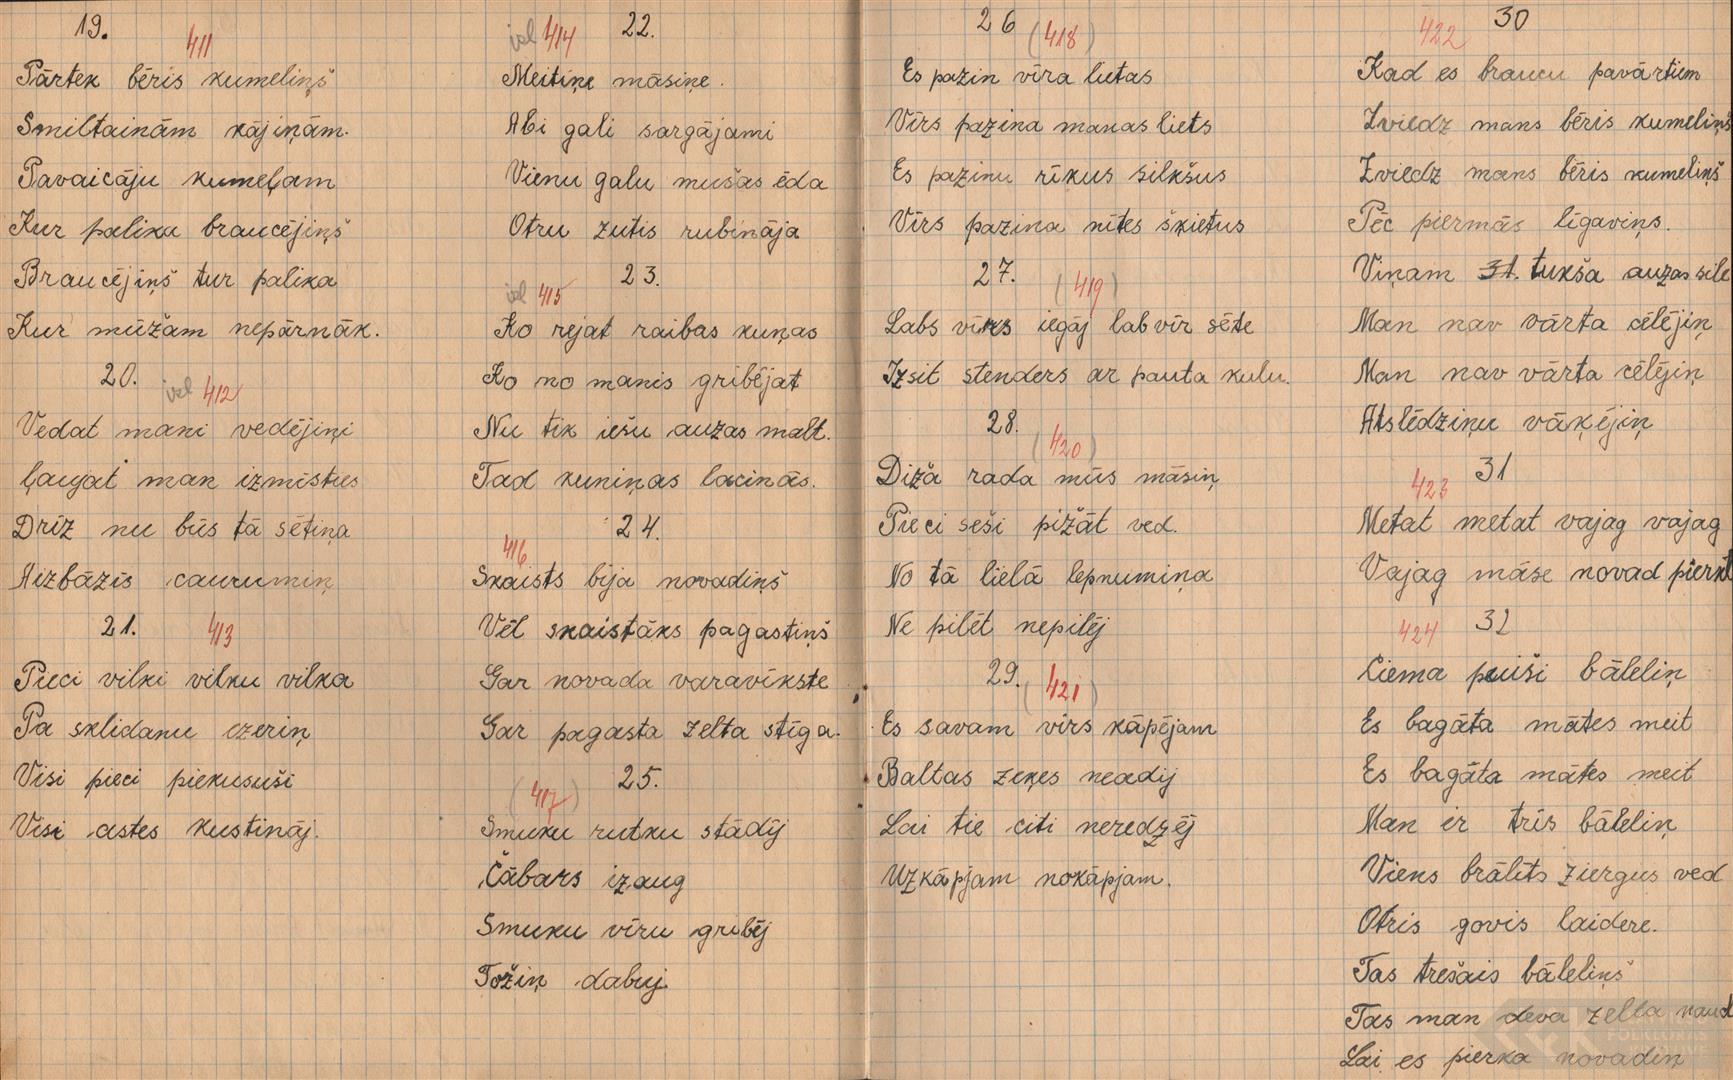 19.
411
Pārtek bēris kumeliņš
Smiltainām kājiņām.
Pavaicāju kumeļam
Kur palika braucējiņš
Braucējiņš tur palika
Kur mūžam nepārnāk.
20.
izl 412
Vedat mani vedējiņi
Ļaujat man izmīsties
Drīz nu būs tā sētiņa
Aizbāzīs caurumiņ
21. 413
Pieci vilki vilku vilka
Pa sklidanu ezeriņ
Visi pieci piekususi
Visi astes kustināj.
izl 414 22.
Meitiņe māsiņe.
Abi gali sargājami
Vienu galu mušas ēda
Otru zutis rubināja
23.
izl 415
Ko rejat raibas kuņas
Ko no manis gribējat
Nu tik iešu auzas malt.
Tad kuniņas lacinās.
24.
416
Skaists bija novadiņš
Vēl skaistāks pagastiņš
Gar novada varavīkste
Gar pagasta zelta stīga.
25.
(417)
Smuku rutku stādīj
Čābars izaug
Smuku vīru gribēj
Tožiņ dabuj.
26 (418)
Es pazin vīra lietas
Vīrs pazina manas liets
Es pazinu rīkus silkšus
Vīrs pazina nītes šķietus
27. (419)
Labs vīrs iegāj lab vīr sēte
Izsit stenders ar pauta kulu.
28. (420)
Diža rada mūs māsiņ
Pieci seši pižāt ved.
No tā lielā lepnumiņa
Ne pilēt nepilēj
29. (421)
Es savam virs kāpējam
Baltas zeķes neadīj
Lai tie citi neredzēj
Uzkāpjam nokāpjam.
422 30
Kad es braucu pavārtiem
Zviedz mans bēris kumeliņš
Zviedz mans bēris kumeliņš
Pēc piermās līgaviņs.
Viņam 31. tukša auzas sile
Man nav vārta cēlējiņ
Man nav vārta cēlējiņ
Atslēdziņu vāķējiņ
423 31
Metat metat vajag vajag
Vajag māse novad pierkt
424 32
Ciema puiši bāleliņ
Es bagāta mātes meit
Es bagāta mātes meit
Man ir trīs bāleliņ
Viens brālīts ziergus ved
Otris govis laidere.
Tas trešais bāleliņš
Tas man deva zelta naud
Lai es pierka novadiņ